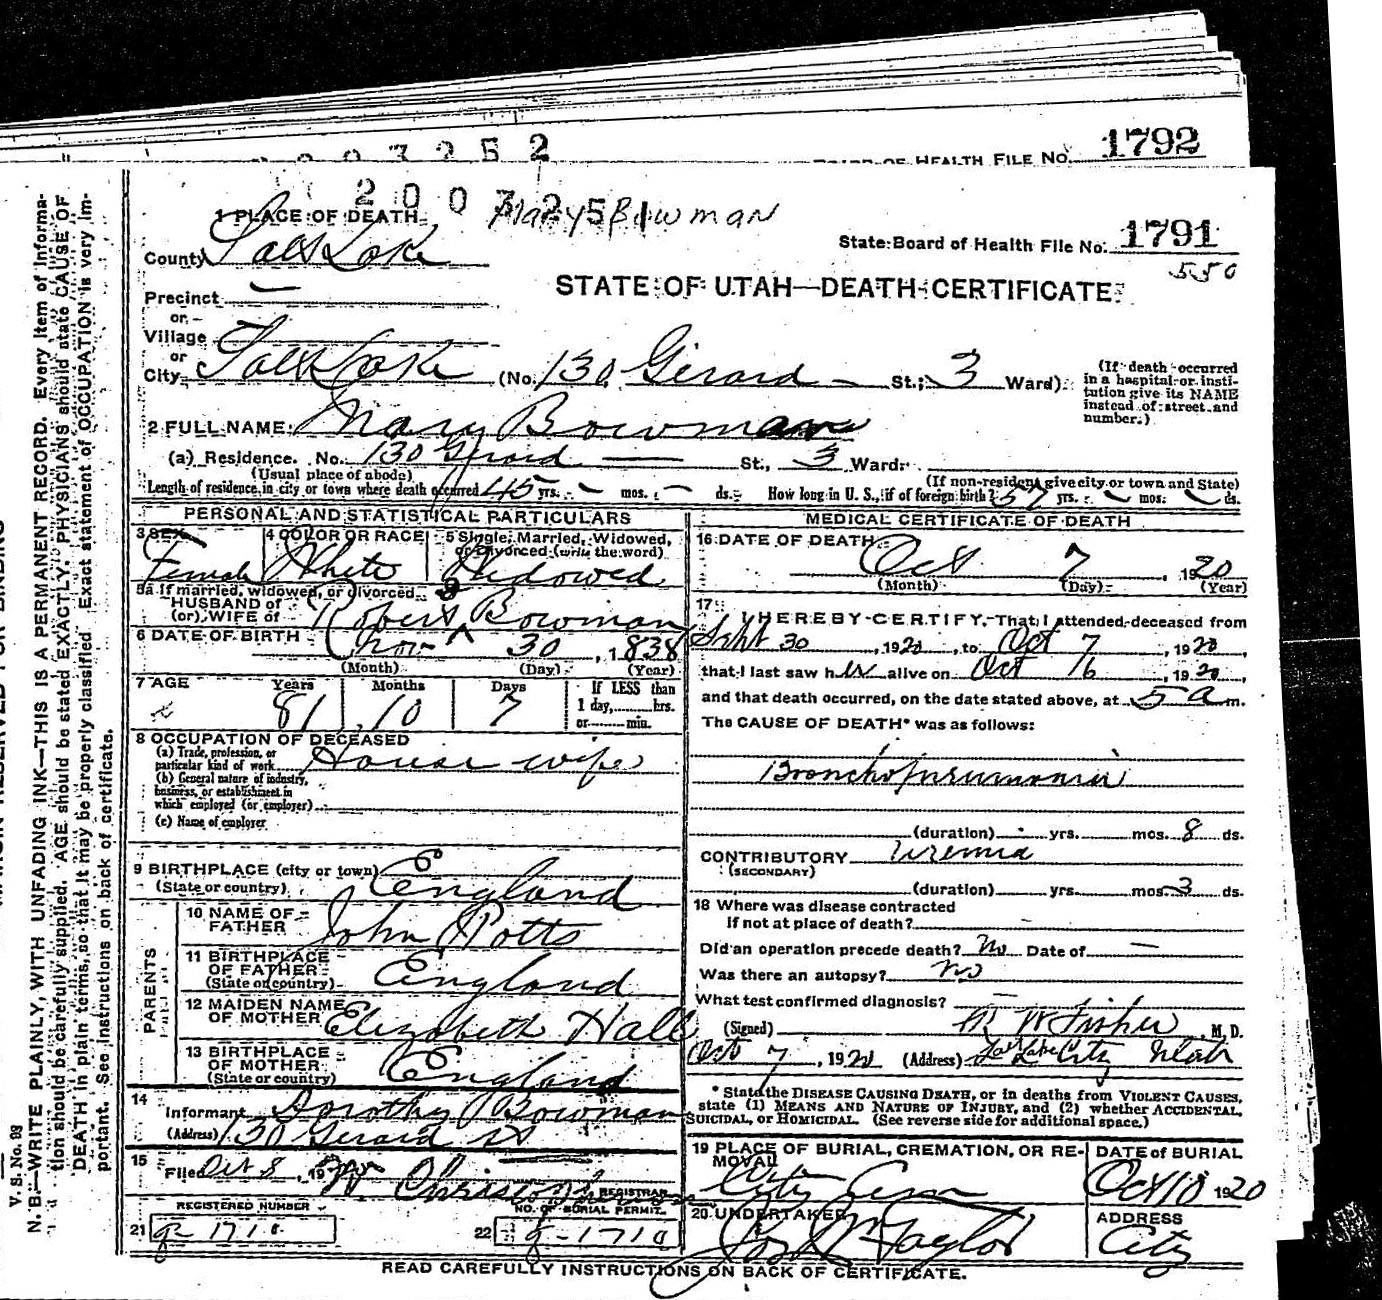 2 0 0 3 2 5 2
BOARD OF HEALTH FILE NO. 1792
2 0 0 3 2 5 1
Mary Bowman
1 PLACE OF DEATH
State Board of Health File No. 1791
County Salt Lake
550
STATE OF UTAH—DEATH CERTIFICATE
Precinct —
or
Village
or
City Salt Lake (No. 130 Girard — St.; 3 Ward)
(If death occurred in a hospital or insti-
tution give its NAME
instead of street and
number.)
2 FULL NAME Mary Bowman
(a) Residence. No. 130 Girard — St., 3 Ward.
(Usual place of abode) (If non-resident give city or town and State)
Length of residence in city or town where death occurred 45 yrs. – mos. – ds. How long in U. S., if of foreign birth? 57 yrs. – mos. – ds.
PERSONAL AND STATISTICAL PARTICULARS
3 SEX 4 COLOR OR RACE 5 Single, Married, Widowed,
or Divorced (write the word)
Female White Widowed
5a If married, widowed, or divorced
HUSBAND of
(or) WIFE of Robert Bowman
6 DATE OF BIRTH Nov 30, 1838
(Month) (Day) (Year)
7 AGE Years Months Days If LESS than
1 day, hrs.
or min.
81 10 7
8 OCCUPATION OF DECEASED
(a) Trade, profession, or
particular kind of work House wife
(b) General nature of industry,
business, or establishment in
which employed (or employer)
(c) Name of employer
9 BIRTHPLACE (city or town)
(State or country) England
PARENTS
10 NAME OF
FATHER John Potts
11 BIRTHPLACE
OF FATHER
(State or country) England
12 MAIDEN NAME
OF MOTHER Elizabeth Hall
13 BIRTHPLACE
OF MOTHER
(State or country) England
14
Informant Dorothy Bowman
(Address) 130 Girard St
15
Filed Oct 8, 19
REGISTRAR
REGISTERED NUMBER NO. OF BURIAL PERMIT
21 22
MEDICAL CERTIFICATE OF DEATH
16 DATE OF DEATH
Oct 7, 1920
(Month) (Day) (Year)
17
I HEREBY CERTIFY, That I attended deceased from
Sept 30, 1920, to Oct 7, 1920,
that I last saw her alive on Oct 6, 1920,
and that death occurred, on the date stated above, at 5 a m.
The CAUSE OF DEATH* was as follows:
Bronchopneumonia
(duration) yrs. mos. 8 ds.
CONTRIBUTORY Uremia
(SECONDARY)
(duration) yrs. mos. 3 ds.
18 Where was disease contracted
If not at place of death?
Did an operation precede death? No Date of —
Was there an autopsy? No
What test confirmed diagnosis? —
(Signed) Fisher, M. D.
Oct 7, 1920 (Address) Salt Lake City Utah
* State the DISEASE CAUSING DEATH, or in deaths from VIOLENT CAUSES,
state (1) MEANS AND NATURE OF INJURY, and (2) whether ACCIDENTAL,
SUICIDAL, or HOMICIDAL. (See reverse side for additional space.)
19 PLACE OF BURIAL, CREMATION, OR RE-
MOVAL
City Cem
DATE of BURIAL
Oct 10 1920
20 UNDERTAKER
Taylor
ADDRESS
City
READ CAREFULLY INSTRUCTIONS ON BACK OF CERTIFICATE.
V. S. No. 98
N. B.—WRITE PLAINLY, WITH UNFADING INK—THIS IS A PERMANENT RECORD. Every item of informa-
tion should be carefully supplied. AGE should be stated EXACTLY. PHYSICIANS should state CAUSE OF
DEATH in plain terms, so that it may be properly classified. Exact statement of OCCUPATION is very im-
portant. See instructions on back of certificate.